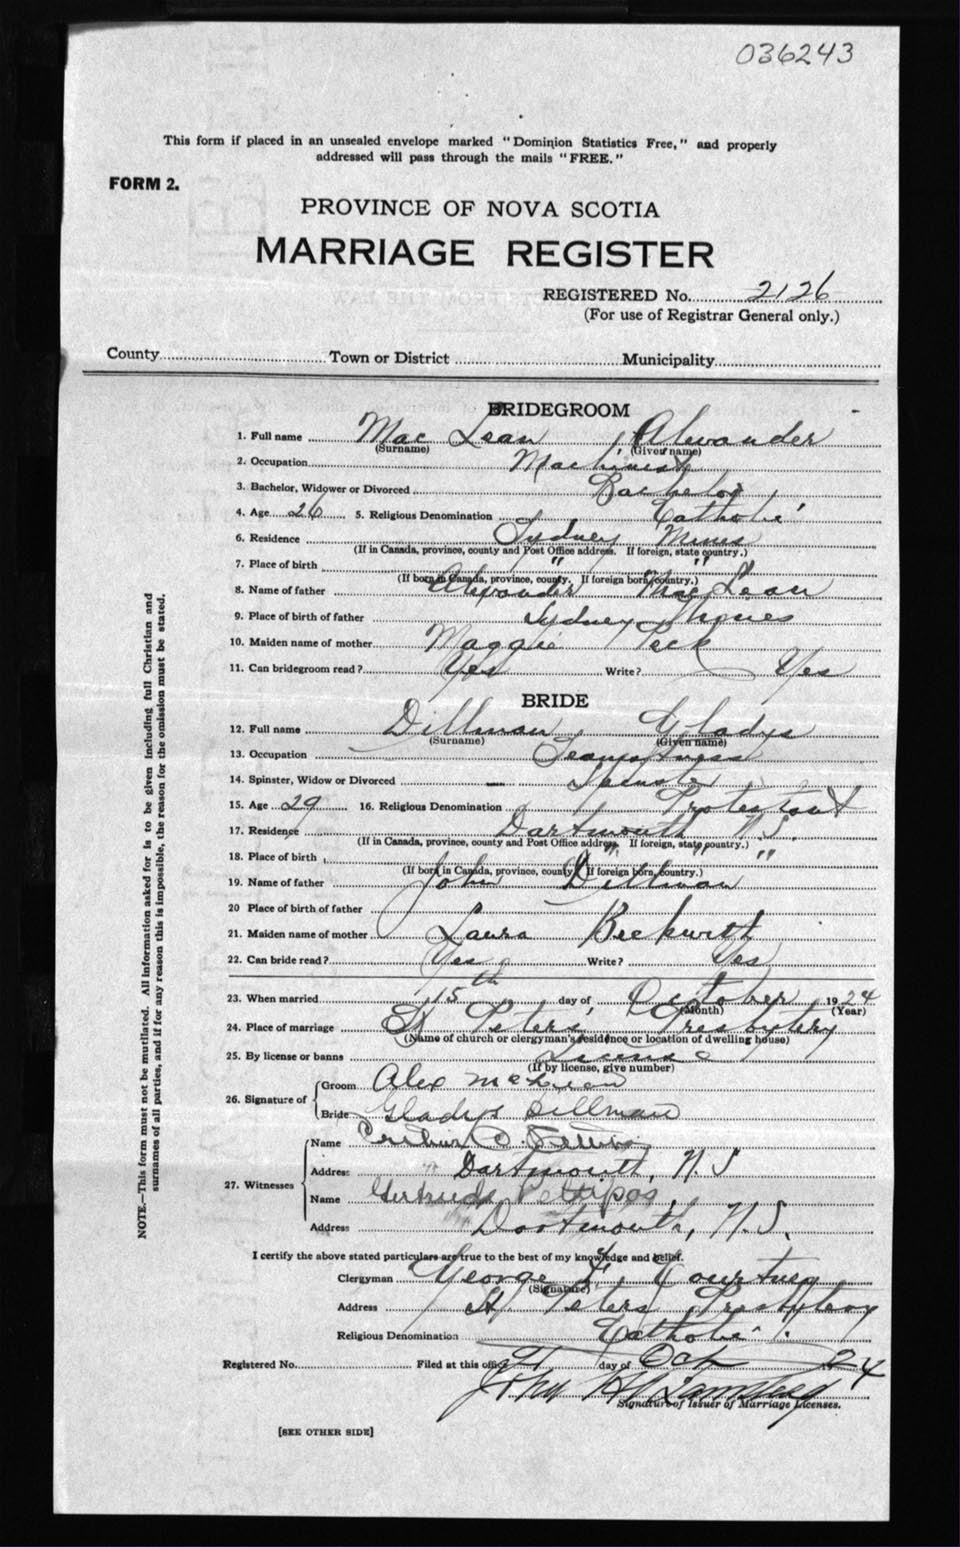 036243
This form if placed in an unsealed envelope marked "Dominion Statistics Free," and properly
addressed will pass through the mails "FREE."
FORM 2.
PROVINCE OF NOVA SCOTIA
MARRIAGE REGISTER
REGISTERED No. 2126
(For use of Registrar General only.)
County Town or District Municipality
BRIDEGROOM
1. Full name Mac Lean Alexander
(Surname) (Given name)
2. Occupation Machinist
3. Bachelor, Widower or Divorced Bachelor
4. Age 26 5. Religious Denomination Catholic
6. Residence Sydney Mines
(If in Canada, province, county and Post Office address. If foreign, state country.)
7. Place of birth " "
(If born in Canada, province, county. If foreign born, country.)
8. Name of father Alexander MacLean
9. Place of birth of father Sydney Mines
10. Maiden name of mother Maggie Peck
11. Can bridegroom read? Yes Write? Yes
BRIDE
12. Full name Dillman Gladys
(Surname) (Given name)
13. Occupation Seamstress
14. Spinster, Widow or Divorced Spinster
15. Age 29 16. Religious Denomination Protestant
17. Residence Dartmouth N.S.
(If in Canada, province, county and Post Office address. If foreign, state country.)
18. Place of birth " " "
(If born in Canada, province, county. If foreign born, country.)
19. Name of father John Dillman
20 Place of birth of father
21. Maiden name of mother Laura Beckwith
22. Can bride read? Yes Write? Yes
23. When married 15th day of October 1924
(Month) (Year)
24. Place of marriage St Peters Presbytery
(Name of church or clergyman's residence or location of dwelling house)
25. By license or banns License
(If by license, give number)
26. Signature of
Groom Alex McLean
Bride Gladys Dillman
27. Witnesses
Name
Address Dartmouth, N.S
Name Gertrude Pettipas
Address Dartmouth, N.S.
I certify the above stated particulars are true to the best of my knowledge and belief.
Clergyman George F. Courtney
(Signature)
Address St. Peters Presbytery
Religious Denomination Catholic
Registered No. Filed at this office 21 day of Oct 24
John
Signature of Issuer of Marriage Licenses.
[SEE OTHER SIDE]
NOTE.—This form must not be mutilated. All information asked for is to be given including full Christian and
surnames of all parties, and if for any reason this is impossible, the reason for the omission must be stated.